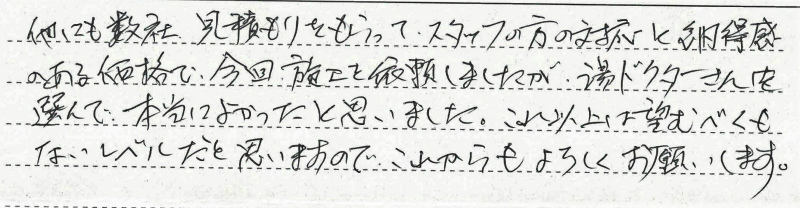 他にも数社、見積もりをもらって、スタッフの方の対応と納得感
のある価格で、今回施工を依頼しましたが、湯ドクターさんを
選んで、本当によかったと思いました。これ以上は望むべくも
ないレベルだと思いますので、これからもよろしくお願いします。